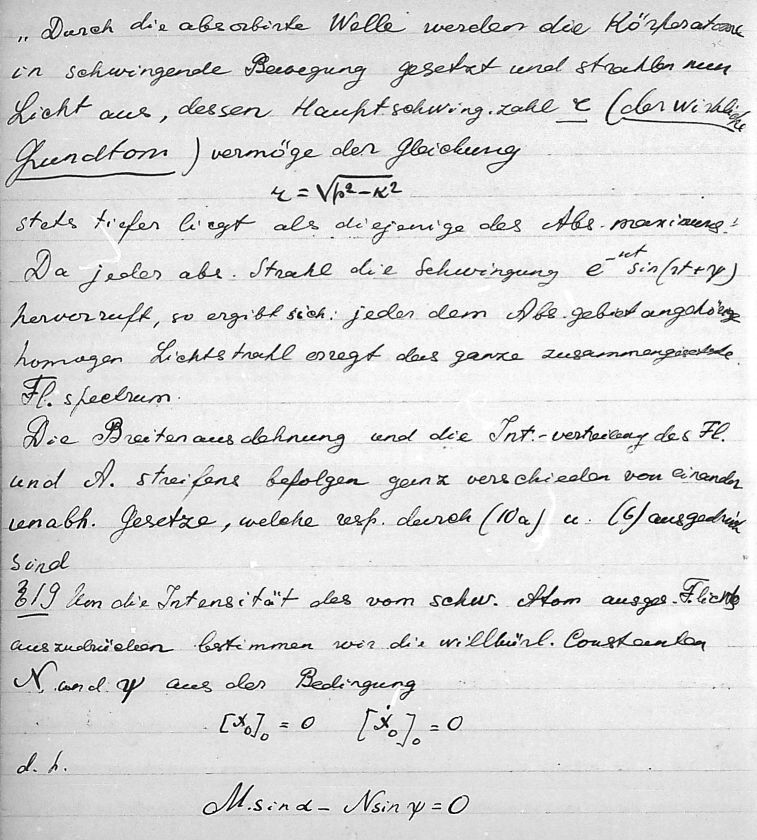 „Durch die absorbirte Welle werden die Körperatome
in schwingende Bewegung gesetzt und strahlen nun
Licht aus, dessen Hauptschwing.zahl r (der wirkliche
Grundton) vermöge der Gleichung
r = √p²-κ²
stets tiefer liegt als diejenige des Abs. maximums!
Da jeder abs. Strahl die Schwingung e^-κt sin(rt+ψ)
hervorruft, so ergibt sich: jeder dem Abs. gebiet angehörige
homogen Lichtstrahl erregt das ganze
Fl. spectrum.
Die Breitenausdehnung und die Int.-verteilung des Fl.
und A. streifens befolgen ganz verschieden von einander
unabh. Gesetze, welche resp. durch (10a) u. (6) ausgedrückt
sind
§19 Um die Intensität des vom schw. Atom ausges. Fl.lichts
auszudrücken bestimmen wir die willkürl. Constanten
N und ψ aus der Bedingung
[x₀]₀ = 0 [ẋ₀]₀ = 0
d. h.
M. sin α - N sin ψ = 0